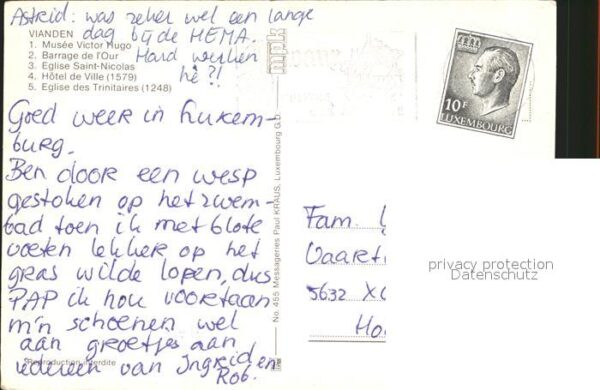 Astrid: was zeker wel een lange
dag bij de HEMA.
Hard werken
hè?!
VIANDEN
1. Musée Victor Hugo
2. Barrage de l'Our
3. Eglise Saint-Nicolas
4. Hôtel de Ville (1579)
5. Eglise des Trinitaires (1248)
mpk
Goed weer in Luxem-
burg.
Ben door een wesp
gestoken op het zwem-
bad toen ik met blote
voeten lekker op het
gras wilde lopen, dus
PAP ik hou voortaan
m'n schoenen wel
aan groetjes aan
iedereen van Ingrid en
Rob.
Reproduction interdite
No. 455 Messageries Paul KRAUS, Luxembourg G.D.
10F
LUXEMBOURG
Fam.
Vaart
5632 X
Ho
privacy protection
Datenschutz